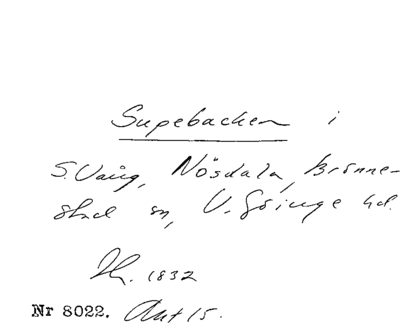 Supebacken i
S. Vång, Nösdala, Brönne-
stad sn, V. Göinge hd.
1832
Nr 8022. Akt 15.